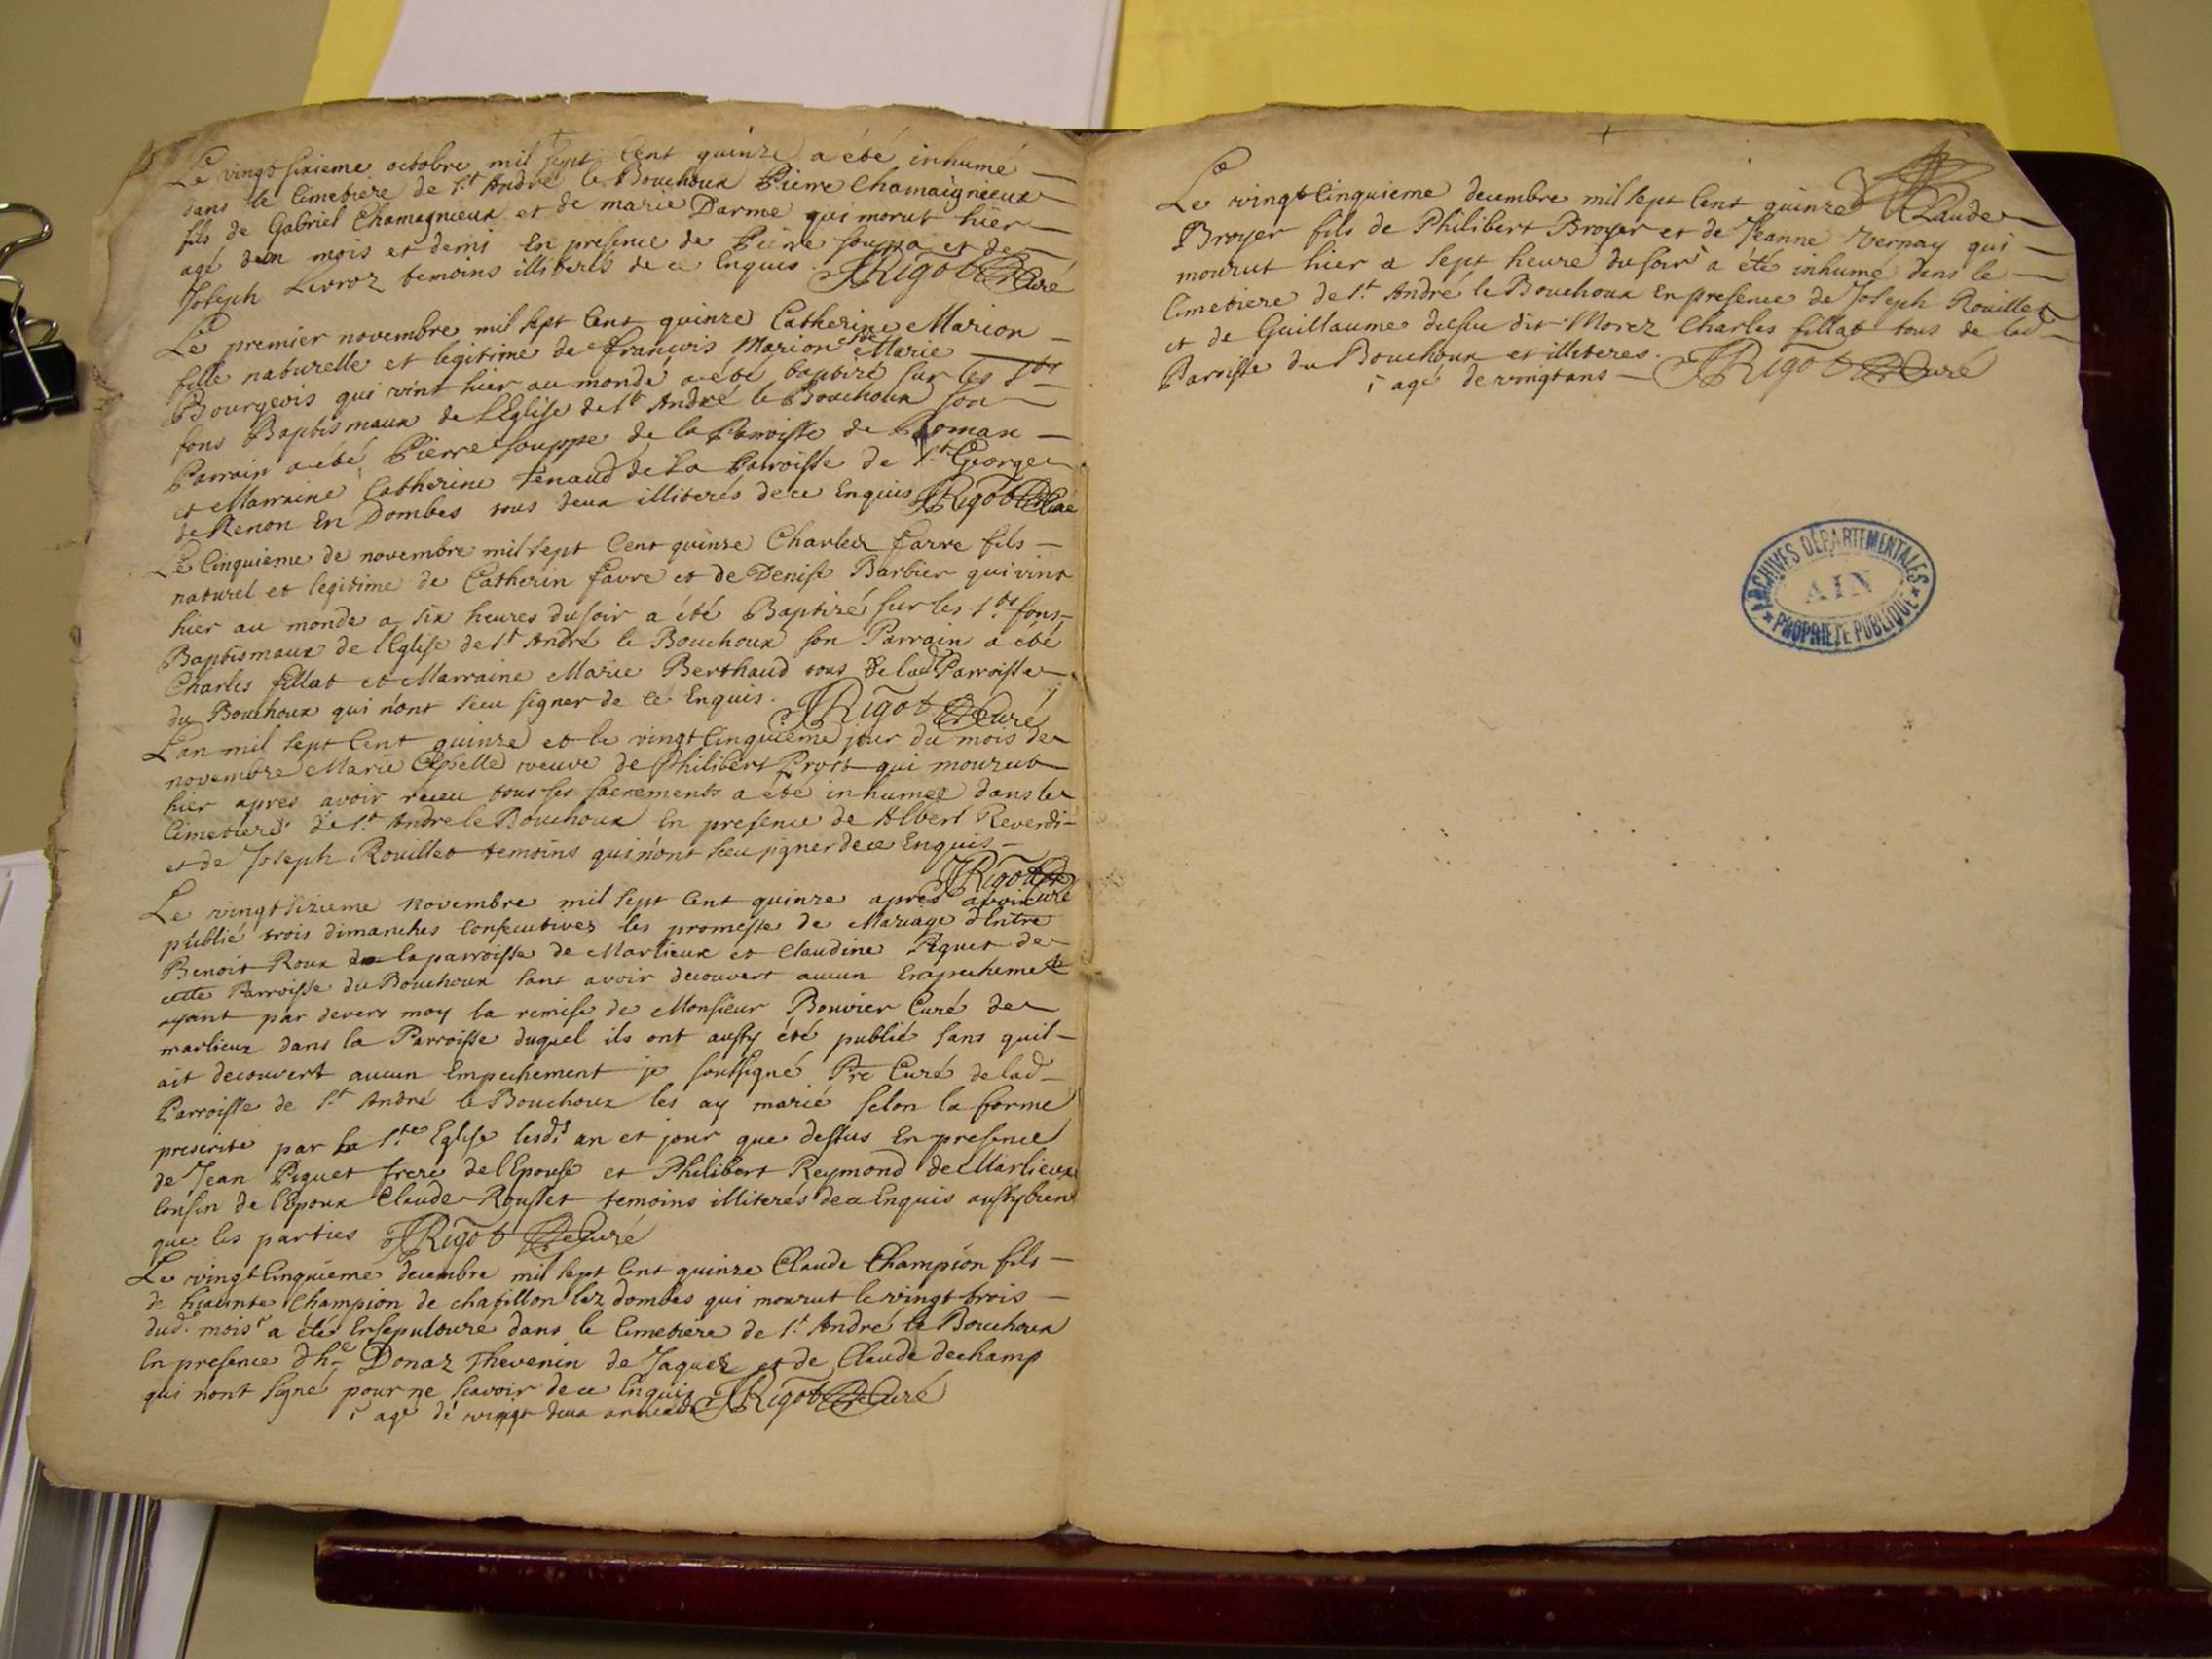 Le vingt sixieme octobre mil sept cent quinze a été inhumé
dans le Cimetiere de St André le Bouchoux Pierre Chamaignieux
fils de Gabriel Chamagnieux et de marie Darme qui morut hier
agé d'un mois et demi En presence de Pierre souppa et de
Joseph Levroz temoins illiterés de ce Enquis JRigot Pre Curé
Le premier novembre mil sept Cent quinze Catherine Marion
fille naturelle et legitime de françois Marion et de Marie
Bourgeois qui vint hier au monde a été baptizé sur les Sts
fons Baptismaux de L'Eglise de St André le Bouchoux son
Parrain a été Pierre souppe de la Parroisse de Roman
et Marraine Catherine Tenaud de La Parroisse de St George
de Renon En Dombes tous deux illiterés de ce Enquis JRigot Pre Curé
Le Cinquieme de novembre mil sept Cent quinze Charles favre fils
naturel et legitime de Catherin favre et de Denise Barbier qui vint
hier au monde a six heures du soir a été Baptizé sur les Sts fons
Baptismaux de l'Eglise de St André le Bouchoux son Parrain a été
Charles fillat et Marraine Marie Berthaud tous de lad Parroisse
du Bouchoux qui n'ont sceu signer de ce Enquis. JRigot Pre Curé
L'an mil sept Cent quinze et le vingt Cinquieme jour du mois de
novembre Marie veuve de Philibert Prost qui mourut
hier apres avoir receu tous ses sacrements a été inhumée dans le
Cimetiere de St André le Bouchoux En presence de Albert Reverdi
et de Joseph Rouillet temoins qui n'ont sceu signer de ce Enquis
JRigot Pre Curé
Le vingt sizieme novembre mil sept Cent quinze apres avoir
publié trois dimanches Consecutives les promesse de Mariage d'Entre
Benoit Roux de la parroisse de Marlieux et Claudine Piquet de
cette Parroisse du Bouchoux sans avoir decouvert aucun Empechemet
ayant par devers moy la remise de Monsieur Bouvier Curé de
marlieux dans la Parroisse duquel ils ont aussy été publié sans quil
ait decouvert aucun Empechement je soussigné Pre Curé de lad
Parroisse de St André le Bouchoux les ay marié selon la forme
prescrite par La Ste Eglise lesds an et jour que dessus En presence
de Jean Piquet frere de l'Epouse et Philibert Reymond de Marlieux
Cousin de l'Epoux Claude Rousset temoins illiterés de ce Enquis aussy bien
que les parties JRigot Pre Curé
Le vingt Cinquieme decembre mil sept Cent quinze Claude Champion fils
de hiacinte Champion de chatillon lez dombes qui mourut le vingt trois
dud. mois a été Ensepulturé dans le Cimetiere de St André le Bouchoux
En presence d'he Donaz Thevenin de Jaquez et de Claude dechamp
qui n'ont signé pour ne scavoir de ce Enquis JRigot Pre Curé
agé de vingt deux années
Le vingt Cinquieme decembre mil sept Cent quinze Claude
Broyer fils de Philibert Broyer et de Jeanne Vernay qui
mourut hier a sept heure du soir a été inhumé dans le
Cimetiere de St André le Bouchoux En presence de Joseph Rouillet
et de Guillaume dit Morez Charles fillat tous de lad
Parroisse du Bouchoux et illiteres. JRigot Pre Curé
agé de vingt ans
ARCHIVES DÉPARTEMENTALES
AIN
PROPRIÉTÉ PUBLIQUE